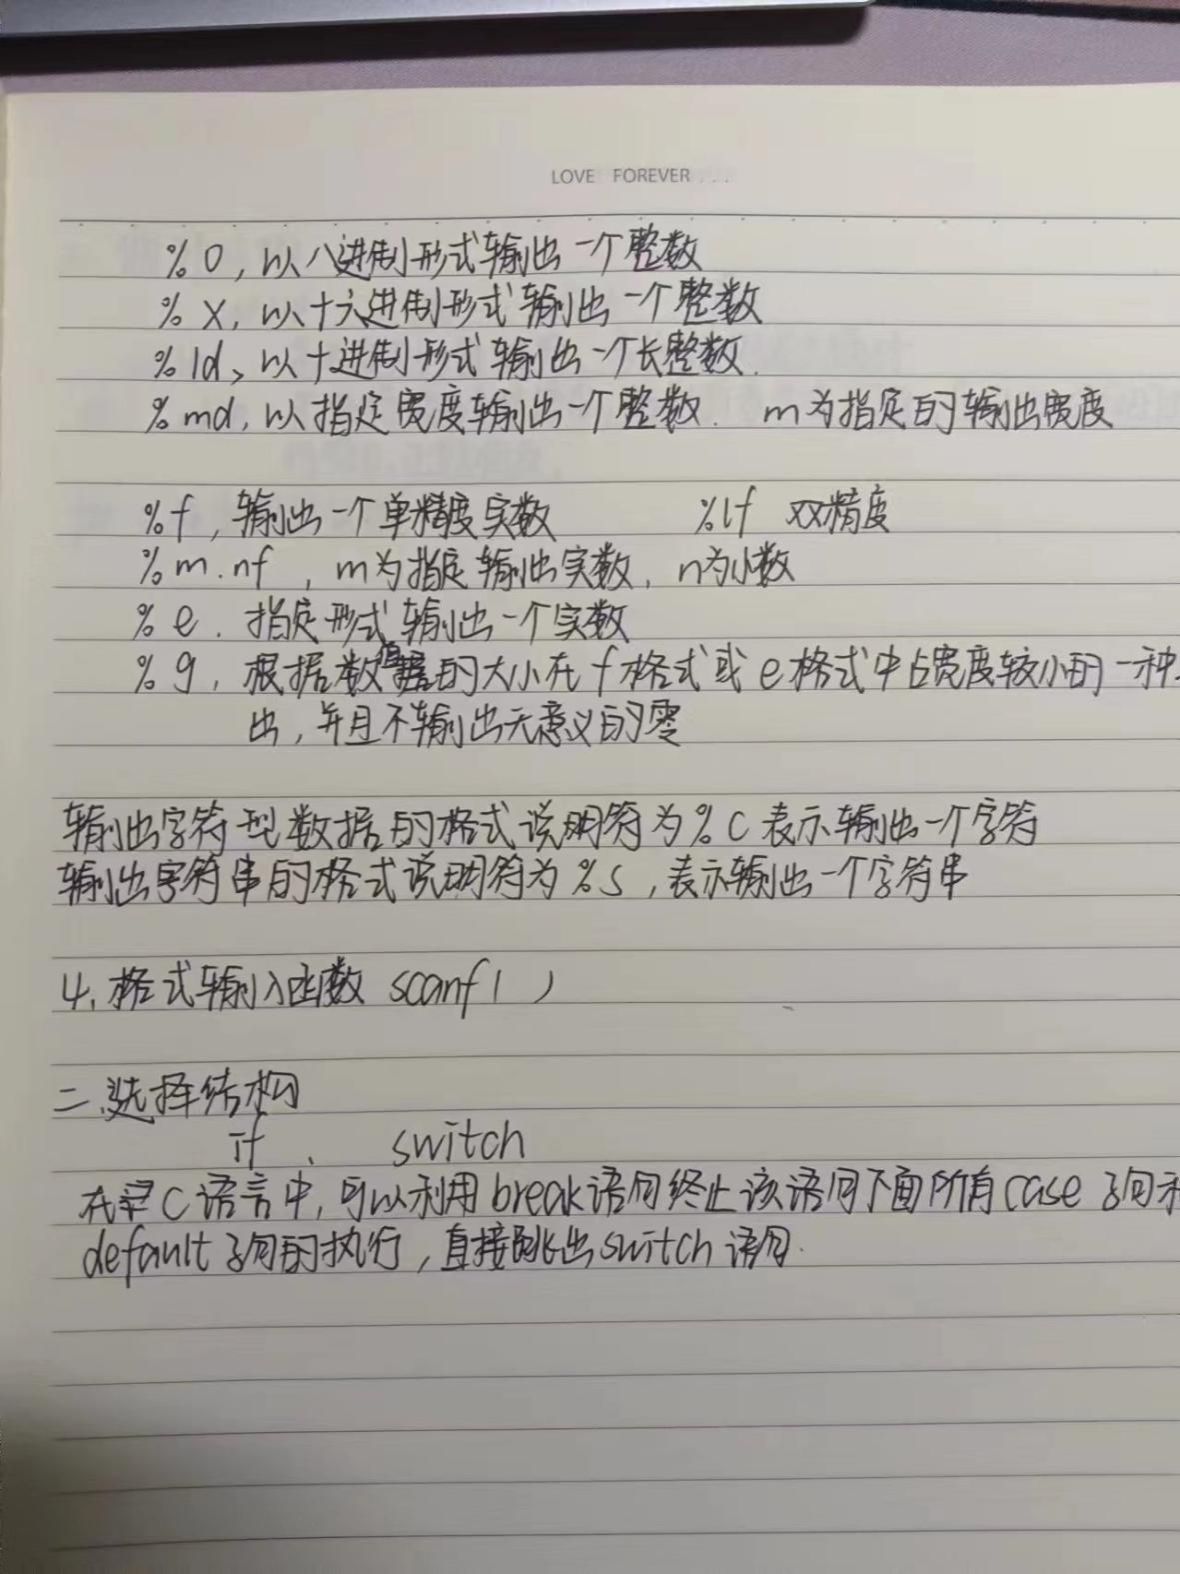 LOVE FOREVER . . .
%O，以八进制形式输出一个整数
%X，以十六进制形式输出一个整数
%ld、以十进制形式输出一个长整数.
%md，以指定宽度输出一个整数. m为指定的输出宽度
%f，输出一个单精度实数 %lf 双精度
%m.nf，m为指定输出实数，n为小数
%e. 指定形式输出一个实数
%g，根据数值的大小在f格式或e格式中占宽度较小的一种
出，并且不输出无意义的零
输出字符型数据的格式说明符为%C表示输出一个字符
输出字符串的格式说明符为%s，表示输出一个字符串
4. 格式输入函数 scanf( )
二.选择结构
if 、 switch
在C语言中，可以利用break语句终止该语句下面所有case子句和
default子句的执行，直接跳出switch语句.